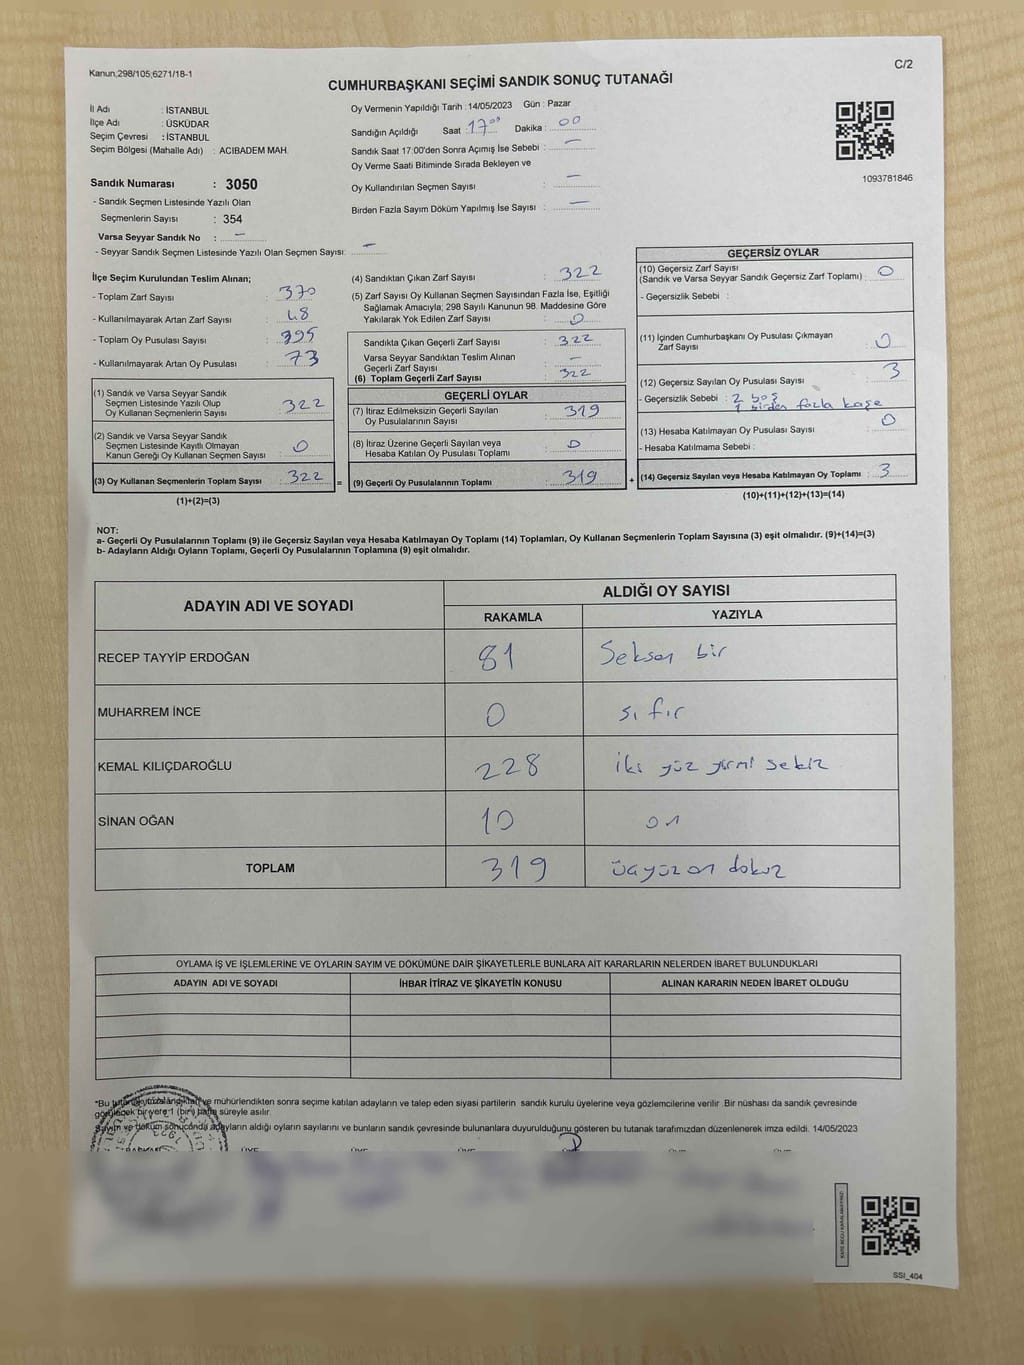 Kanun;298/105;6271/18-1
C/2
CUMHURBAŞKANI SEÇİMİ SANDIK SONUÇ TUTANAĞI
İl Adı : İSTANBUL
İlçe Adı : ÜSKÜDAR
Seçim Çevresi : İSTANBUL
Seçim Bölgesi (Mahalle Adı) : ACIBADEM MAH.
Oy Vermenin Yapıldığı Tarih : 14/05/2023 Gün : Pazar
Sandığın Açıldığı Saat : 17⁰⁰ Dakika : 00
Sandık Saat 17:00'den Sonra Açımış İse Sebebi : —
Oy Verme Saati Bitiminde Sırada Bekleyen ve
Oy Kullandırılan Seçmen Sayısı : —
Birden Fazla Sayım Döküm Yapılmış İse Sayısı : —
1093781846
Sandık Numarası : 3050
- Sandık Seçmen Listesinde Yazılı Olan
Seçmenlerin Sayısı : 354
Varsa Seyyar Sandık No : —
- Seyyar Sandık Seçmen Listesinde Yazılı Olan Seçmen Sayısı: —
İlçe Seçim Kurulundan Teslim Alınan;
- Toplam Zarf Sayısı : 370
- Kullanılmayarak Artan Zarf Sayısı : 48
- Toplam Oy Pusulası Sayısı : 395
- Kullanılmayarak Artan Oy Pusulası : 73
(1) Sandık ve Varsa Seyyar Sandık
Seçmen Listesinde Yazılı Olup
Oy Kullanan Seçmenlerin Sayısı : 322
(2) Sandık ve Varsa Seyyar Sandık
Seçmen Listesinde Kayıtlı Olmayan
Kanun Gereği Oy Kullanan Seçmen Sayısı : 0
(3) Oy Kullanan Seçmenlerin Toplam Sayısı : 322 =
(1)+(2)=(3)
(4) Sandıktan Çıkan Zarf Sayısı : 322
(5) Zarf Sayısı Oy Kullanan Seçmen Sayısından Fazla İse, Eşitliği
Sağlamak Amacıyla; 298 Sayılı Kanunun 98. Maddesine Göre
Yakılarak Yok Edilen Zarf Sayısı : 0
Sandıkta Çıkan Geçerli Zarf Sayısı : 322
Varsa Seyyar Sandıktan Teslim Alınan
Geçerli Zarf Sayısı : —
(6) Toplam Geçerli Zarf Sayısı : 322
GEÇERLİ OYLAR
(7) İtiraz Edilmeksizin Geçerli Sayılan
Oy Pusulasının Sayısı : 319
(8) İtiraz Üzerine Geçerli Sayılan veya
Hesaba Katılan Oy Pusulası Toplamı : 0
(9) Geçerli Oy Pusulalarının Toplamı : 319 +
GEÇERSİZ OYLAR
(10) Geçersiz Zarf Sayısı
(Sandık ve Varsa Seyyar Sandık Geçersiz Zarf Toplamı) : 0
- Geçersizlik Sebebi :
(11) İçinden Cumhurbaşkanı Oy Pusulası Çıkmayan
Zarf Sayısı : 0
(12) Geçersiz Sayılan Oy Pusulası Sayısı : 3
- Geçersizlik Sebebi : 2 boş
1 birden fazla kaşe
(13) Hesaba Katılmayan Oy Pusulası Sayısı : 0
- Hesaba Katılmama Sebebi :
(14) Geçersiz Sayılan veya Hesaba Katılmayan Oy Toplamı : 3
(10)+(11)+(12)+(13)=(14)
NOT:
a- Geçerli Oy Pusulalarının Toplamı (9) ile Geçersiz Sayılan veya Hesaba Katılmayan Oy Toplamı (14) Toplamları, Oy Kullanan Seçmenlerin Toplam Sayısına (3) eşit olmalıdır. (9)+(14)=(3)
b- Adayların Aldığı Oyların Toplamı, Geçerli Oy Pusulalarının Toplamına (9) eşit olmalıdır.
ADAYIN ADI VE SOYADI ALDIĞI OY SAYISI
RAKAMLA YAZIYLA
RECEP TAYYİP ERDOĞAN 81 Seksen bir
MUHARREM İNCE 0 sıfır
KEMAL KILIÇDAROĞLU 228 iki yüz yirmi sekiz
SİNAN OĞAN 10 on
TOPLAM 319 üçyüz on dokuz
OYLAMA İŞ VE İŞLEMLERİNE VE OYLARIN SAYIM VE DÖKÜMÜNE DAİR ŞİKAYETLERLE BUNLARA AİT KARARLARIN NELERDEN İBARET BULUNDUKLARI
ADAYIN ADI VE SOYADI İHBAR İTİRAZ VE ŞİKAYETİN KONUSU ALINAN KARARIN NEDEN İBARET OLDUĞU
*Bu tutanak imzalandıktan ve mühürlendikten sonra seçime katılan adayların ve talep eden siyasi partilerin sandık kurulu üyelerine veya gözlemcilerine verilir .Bir nüshası da sandık çevresinde
görülecek bir yere 1 (bir) hafta süreyle asılır.
Sayım ve döküm sonucunda adayların aldığı oyların sayılarını ve bunların sandık çevresinde bulunanlara duyurulduğunu gösteren bu tutanak tarafımızdan düzenlenerek imza edildi. 14/05/2023
SSI_404